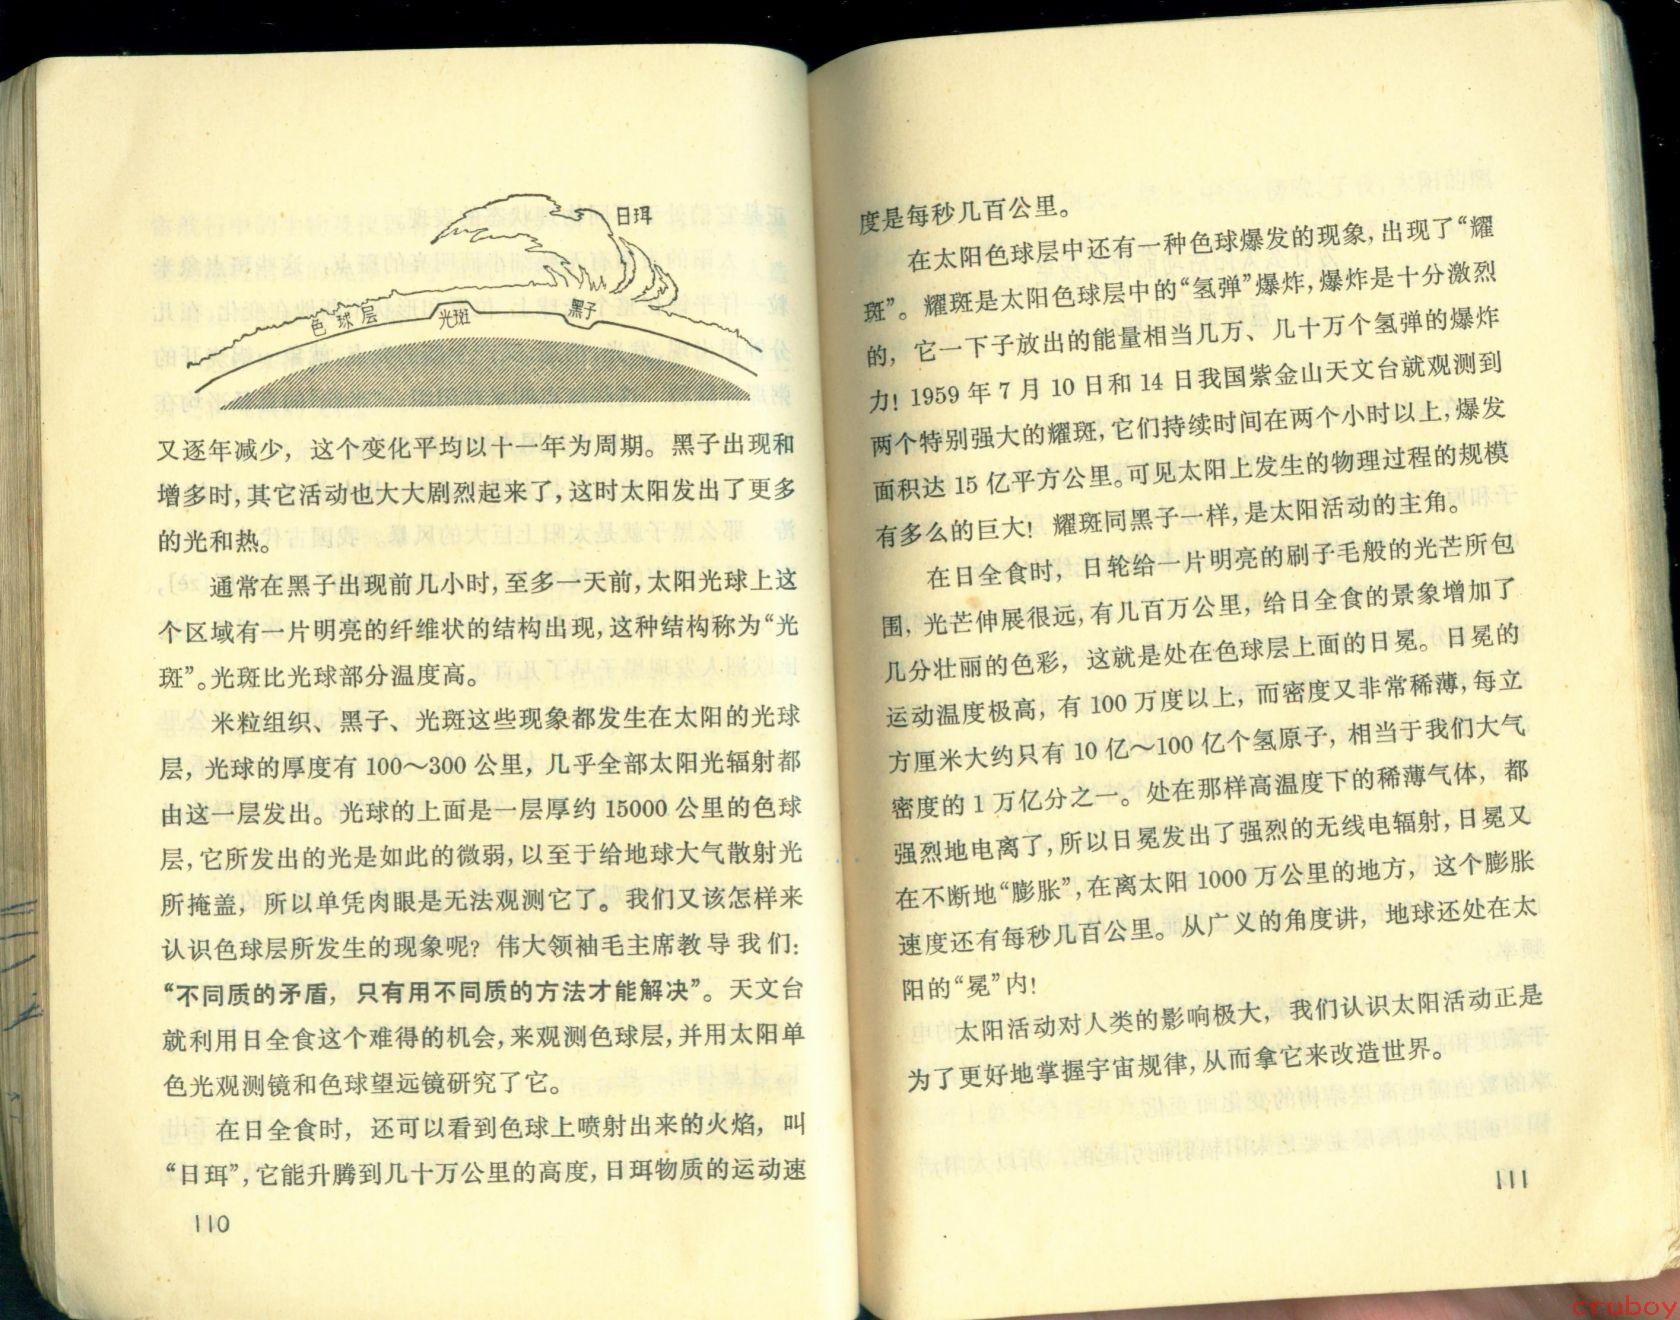 日珥
色球层
光斑
黑子
又逐年减少，这个变化平均以十一年为周期。黑子出现和
增多时，其它活动也大大剧烈起来了，这时太阳发出了更多
的光和热。
通常在黑子出现前几小时，至多一天前，太阳光球上这
个区域有一片明亮的纤维状的结构出现，这种结构称为“光
斑”。光斑比光球部分温度高。
米粒组织、黑子、光斑这些现象都发生在太阳的光球
层，光球的厚度有100～300公里，几乎全部太阳光辐射都
由这一层发出。光球的上面是一层厚约15000公里的色球
层，它所发出的光是如此的微弱，以至于给地球大气散射光
所掩盖，所以单凭肉眼是无法观测它了。我们又该怎样来
认识色球层所发生的现象呢？伟大领袖毛主席教导我们：
“不同质的矛盾，只有用不同质的方法才能解决”。天文台
就利用日全食这个难得的机会，来观测色球层，并用太阳单
色光观测镜和色球望远镜研究了它。
在日全食时，还可以看到色球上喷射出来的火焰，叫
“日珥”，它能升腾到几十万公里的高度，日珥物质的运动速
110
度是每秒几百公里。
在太阳色球层中还有一种色球爆发的现象，出现了“耀
斑”。耀斑是太阳色球层中的“氢弹”爆炸，爆炸是十分激烈
的，它一下子放出的能量相当几万、几十万个氢弹的爆炸
力！1959年7月10日和14日我国紫金山天文台就观测到
两个特别强大的耀斑，它们持续时间在两个小时以上，爆发
面积达15亿平方公里。可见太阳上发生的物理过程的规模
有多么的巨大！耀斑同黑子一样，是太阳活动的主角。
在日全食时，日轮给一片明亮的刷子毛般的光芒所包
围，光芒伸展很远，有几百万公里，给日全食的景象增加了
几分壮丽的色彩，这就是处在色球层上面的日冕。日冕的
运动温度极高，有100万度以上，而密度又非常稀薄，每立
方厘米大约只有10亿～100亿个氢原子，相当于我们大气
密度的1万亿分之一。处在那样高温度下的稀薄气体，都
强烈地电离了，所以日冕发出了强烈的无线电辐射，日冕又
在不断地“膨胀”，在离太阳1000万公里的地方，这个膨胀
速度还有每秒几百公里。从广义的角度讲，地球还处在太
阳的“冕”内！
太阳活动对人类的影响极大，我们认识太阳活动正是
为了更好地掌握宇宙规律，从而拿它来改造世界。
111
cruboy